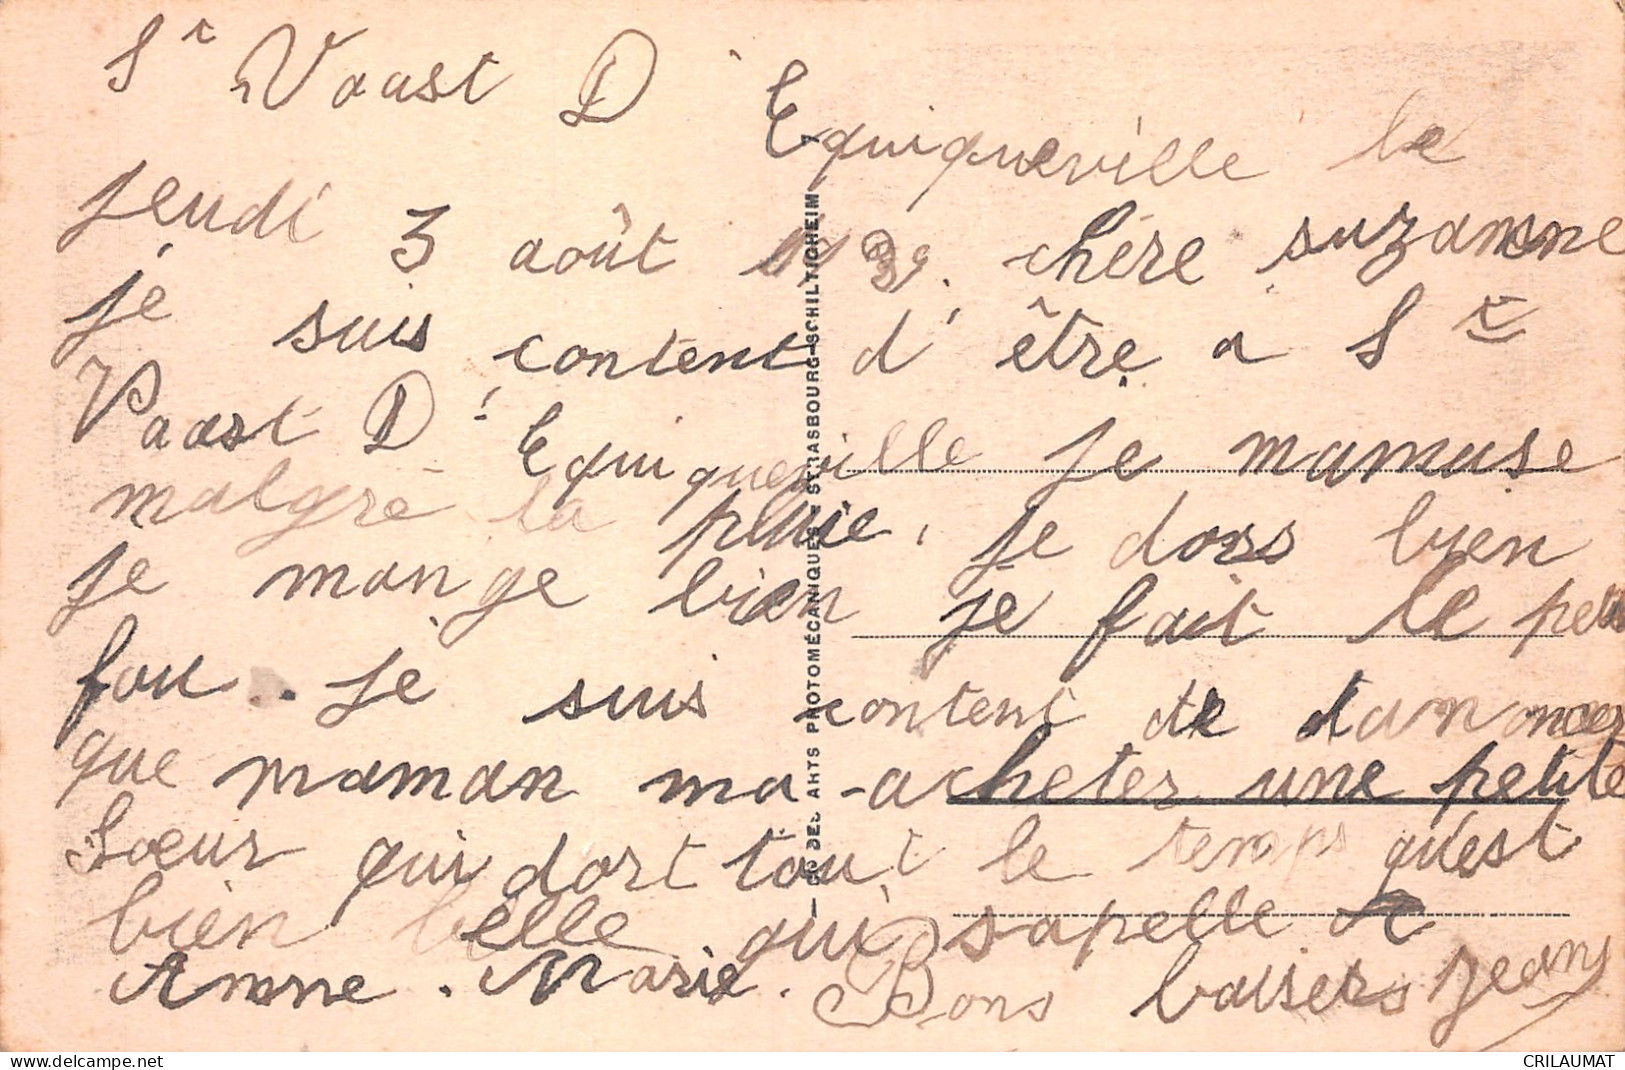 St Vaast D
Equiqueville le
jeudi 3 août 1939. chère suzanne
je suis content d'être a St
Vaast D' Equiqueville je mamuse
malgré la pluie, je dors bien
je mange bien je fait le petit
fou.. je suis content de danoncer
que maman ma-acheter une petite
soeur qui dort tout le temps qu'est
bien belle qui sapelle
Anne. Marie. Bons baisers Jean
CIE DES ARTS PHOTOMÉCANIQUES - STRASBOURG-SCHILTIGHEIM
delcampe.net
CRILAUMAT